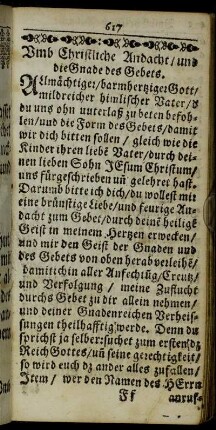 617
Vmb Christliche Andacht/ und
die Gnade des Gebets.
Allmächtiger/ barmhertziger Gott/
mildreicher himlischer Vater/ d
du uns ohn unterlaß zu beten befoh-
len/ und die Form des Gebets/ damit
wir dich bitten sollen/ gleich wie die
Kinder ihren liebē Vater/ durch dei-
nen lieben Sohn JEsum Christum/
uns fürgeschrieben uñ gelehret hast.
Darumb bitte ich dich/ du wollest mir
eine brünstige Liebe/ und feurige An-
dacht zum Gebet/ durch deinē heiligē
Geist in meinem Hertzen erwecken/
und mir den Geist der Gnaden und
des Gebets von oben herab verleihē/
damit ich in aller Anfechtūg/ Creutz/
und Verfolgung/ meine Zuflucht
durchs Gebet zu dir allein nehmen/
und deiner Gnadenreichen Verheis-
sungen theilhafftig werde. Denn du
sprichst ja selber: suchet zum ersten dz
Reich Gottes/ uñ seine gerechtigkeit/
so wird euch dz ander alles zufallen/
Item/ wer den Namen des HErrn
Ff anruf-